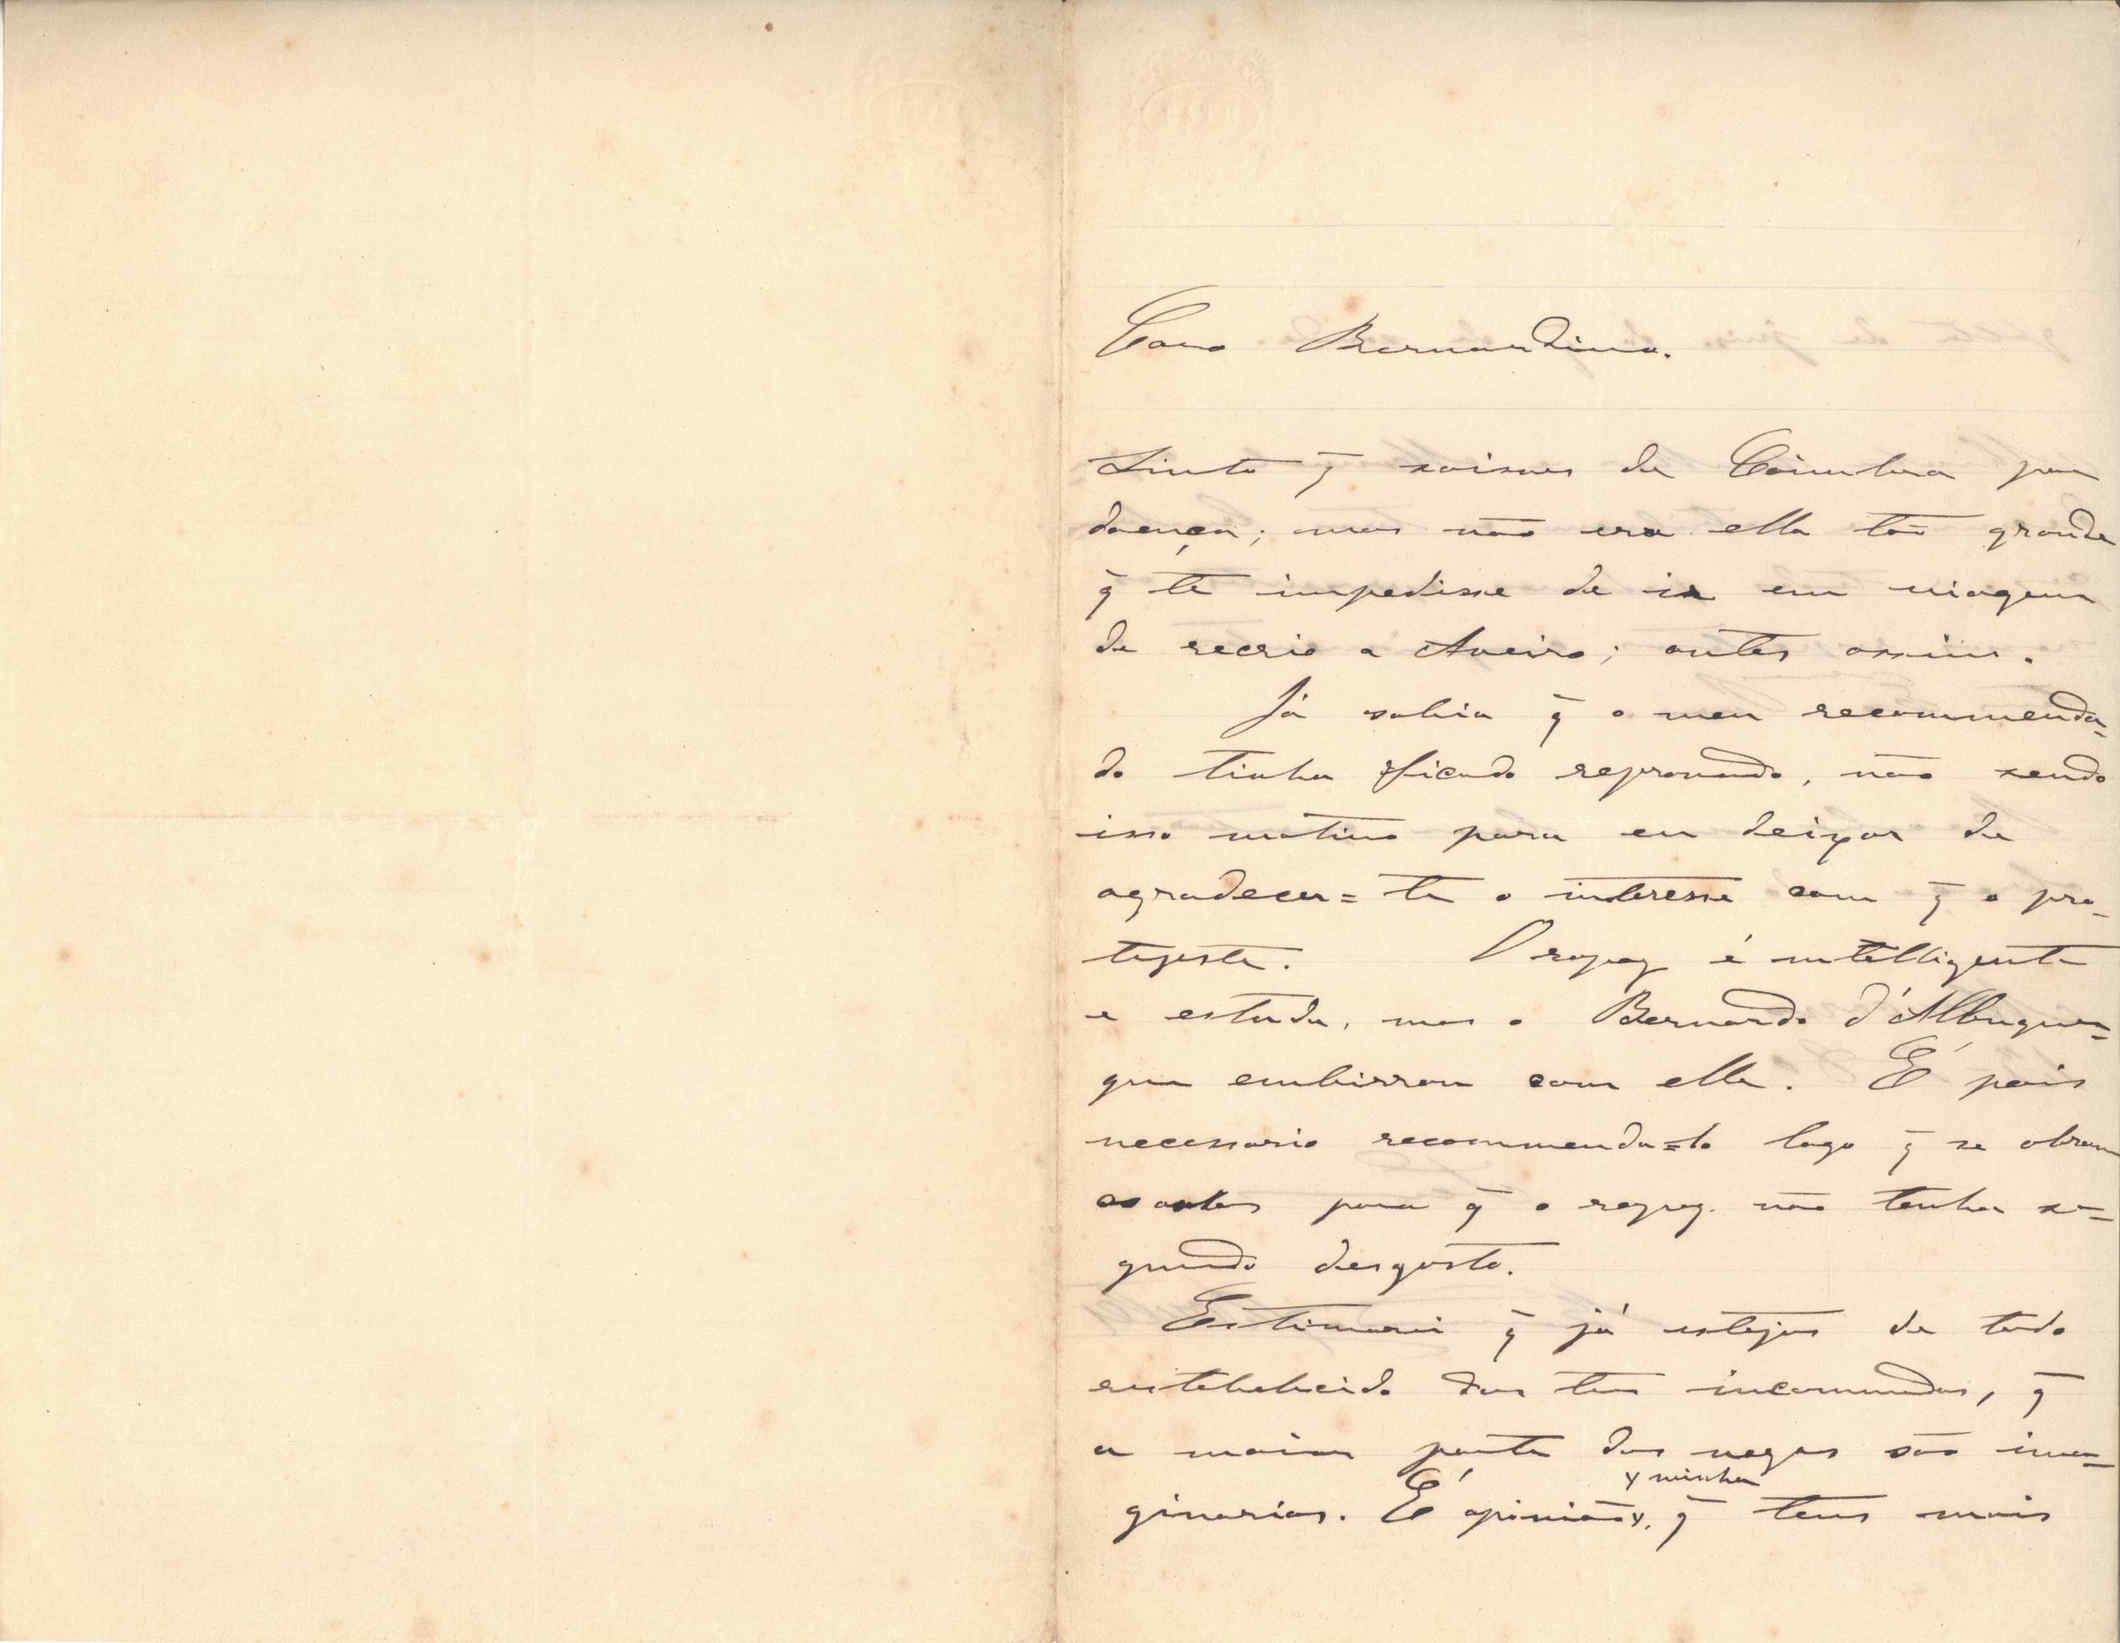 Caro Bernardino.
Sinto q̃ saisses de Coimbra por
doença; mas não era ella tão grande
q̃ te impedisse de ir em viagem
de recrio a Aveiro; antes assim.
Já sabia q̃ o meu recommenda-
do tinha ficado reprovado, não sendo
isso motivo para eu deixar de
agradecer=te o interesse com q̃ o pro-
tegeste. O rapaz é intelligente
e estuda, mas o Bernardo d'Albuquer=
que embirrou com elle. É pois
necessario recommenda=lo logo q̃ se abram
as aulas para q̃ o rapaz não tenha se=
gundo desgosto.
Estimarei q̃ já estejas de todo
restabelecido dos teus incommodos, q̃
a maior parte das vezes são ima=
ginarios. É opinião minha q̃ tens mais